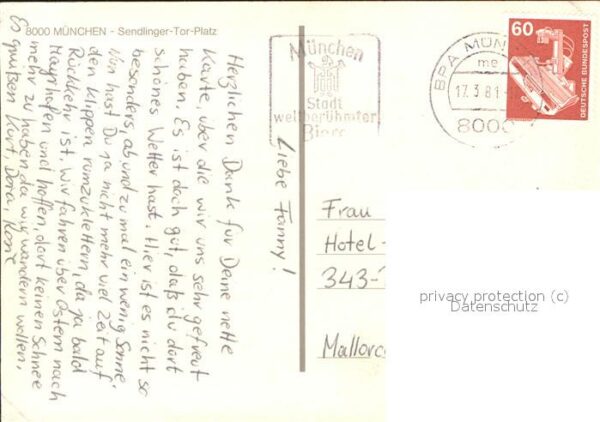 8000 MÜNCHEN - Sendlinger-Tor-Platz
Liebe Fanny!
Herzlichen Dank für Deine nette
Karte, über die wir uns sehr gefreut
haben. Es ist doch gut, daß du dort
schönes Wetter hast. Hier ist es nicht so
besonders, ab und zu mal ein wenig Sonne.
Nun hast Du ja nicht mehr viel Zeit auf
den Klippen rumzuklettern, da ja bald
Rückkehr ist. Wir fahren über Ostern nach
Mayrhofen und hoffen, dort keinen Schnee
mehr zu haben, da wir wandern wollen.
Es grüßen Kurt, Dora,
München
Stadt
weltberühmter
Biere
BPA MÜN
me
17.3.81
8000
60
DEUTSCHE BUNDESPOST
Frau
Hotel-
343-
Mallorc
privacy protection (c)
Datenschutz